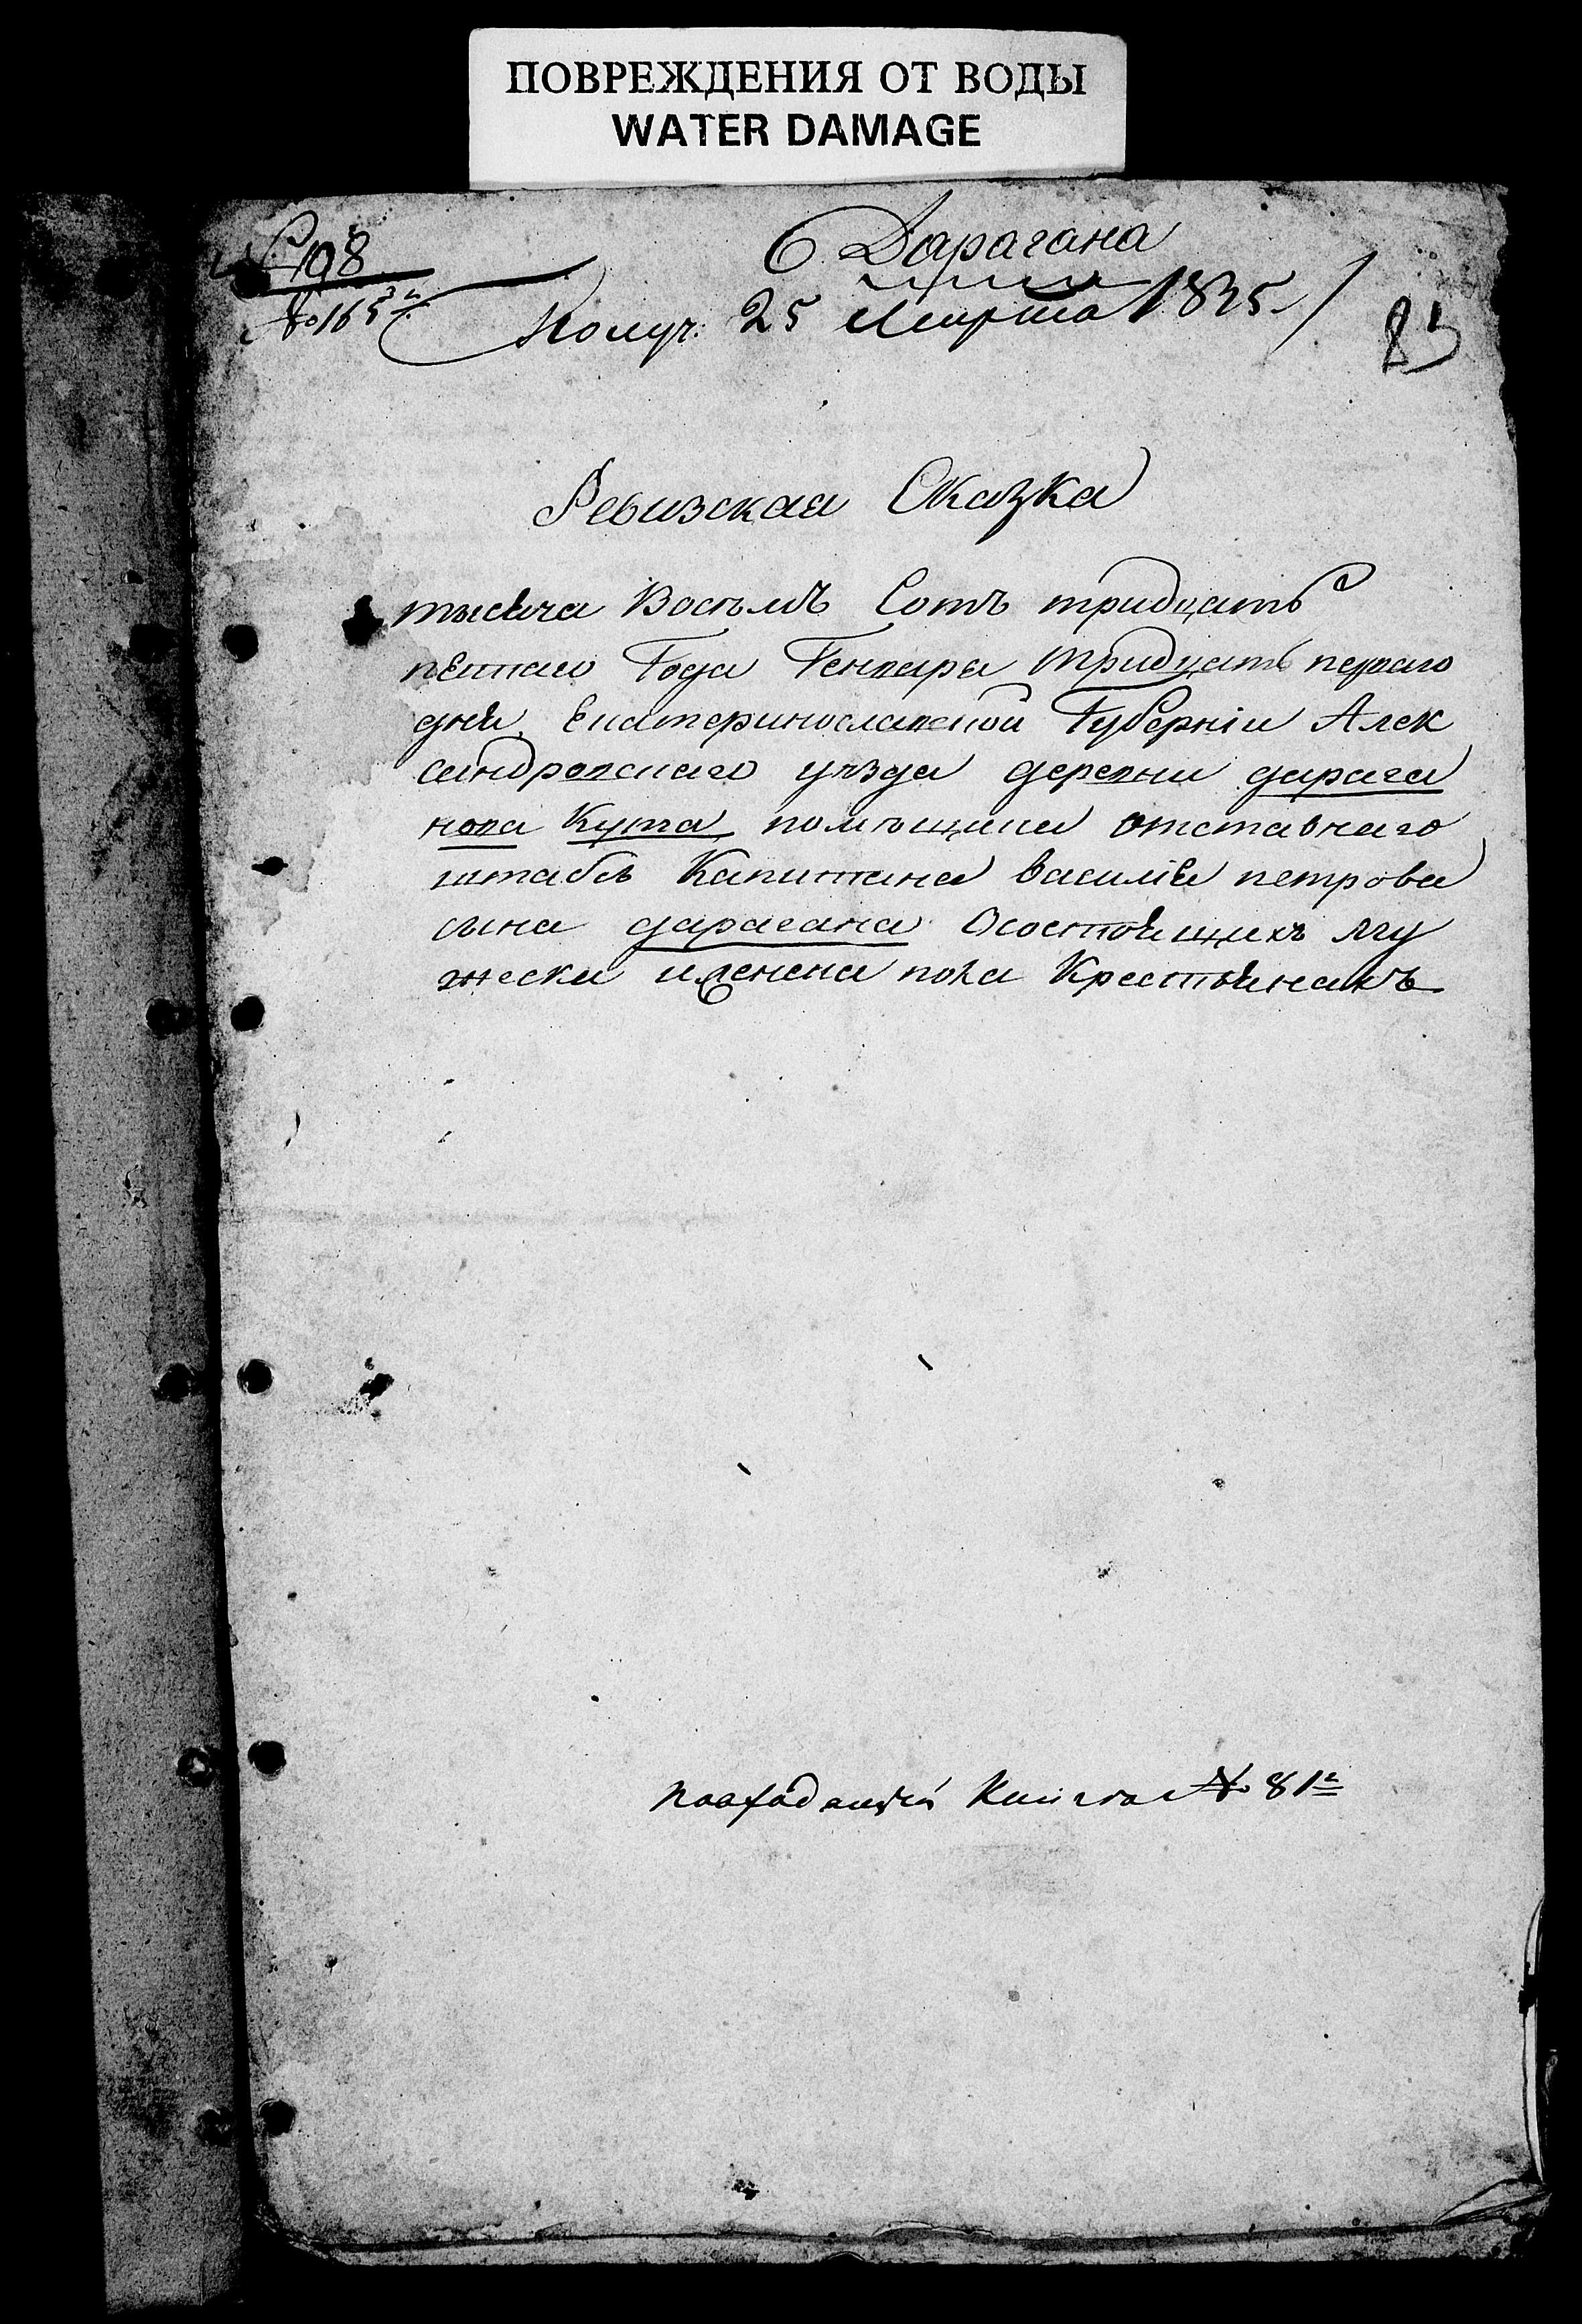 ПОВРЕЖДЕНИЯ ОТ ВОДЫ
WATER DAMAGE
198
№ 165
Дарагана
Получ: 25 Марта 1835
Ревизская Сказка
тысяча Восѣмъ Сотъ тридцать
пятаго Года Генваря тридцать перваго
дня, Екатеринославской Губерніи Алек
сандровскаго уѣзда деревни дарага
нова Кута помѣщика отставнаго
штабсъ Капитана василія петрова
сына дарагана Осостоящихъ му
жеска иженска пола Крестьянахъ
Книга № 81